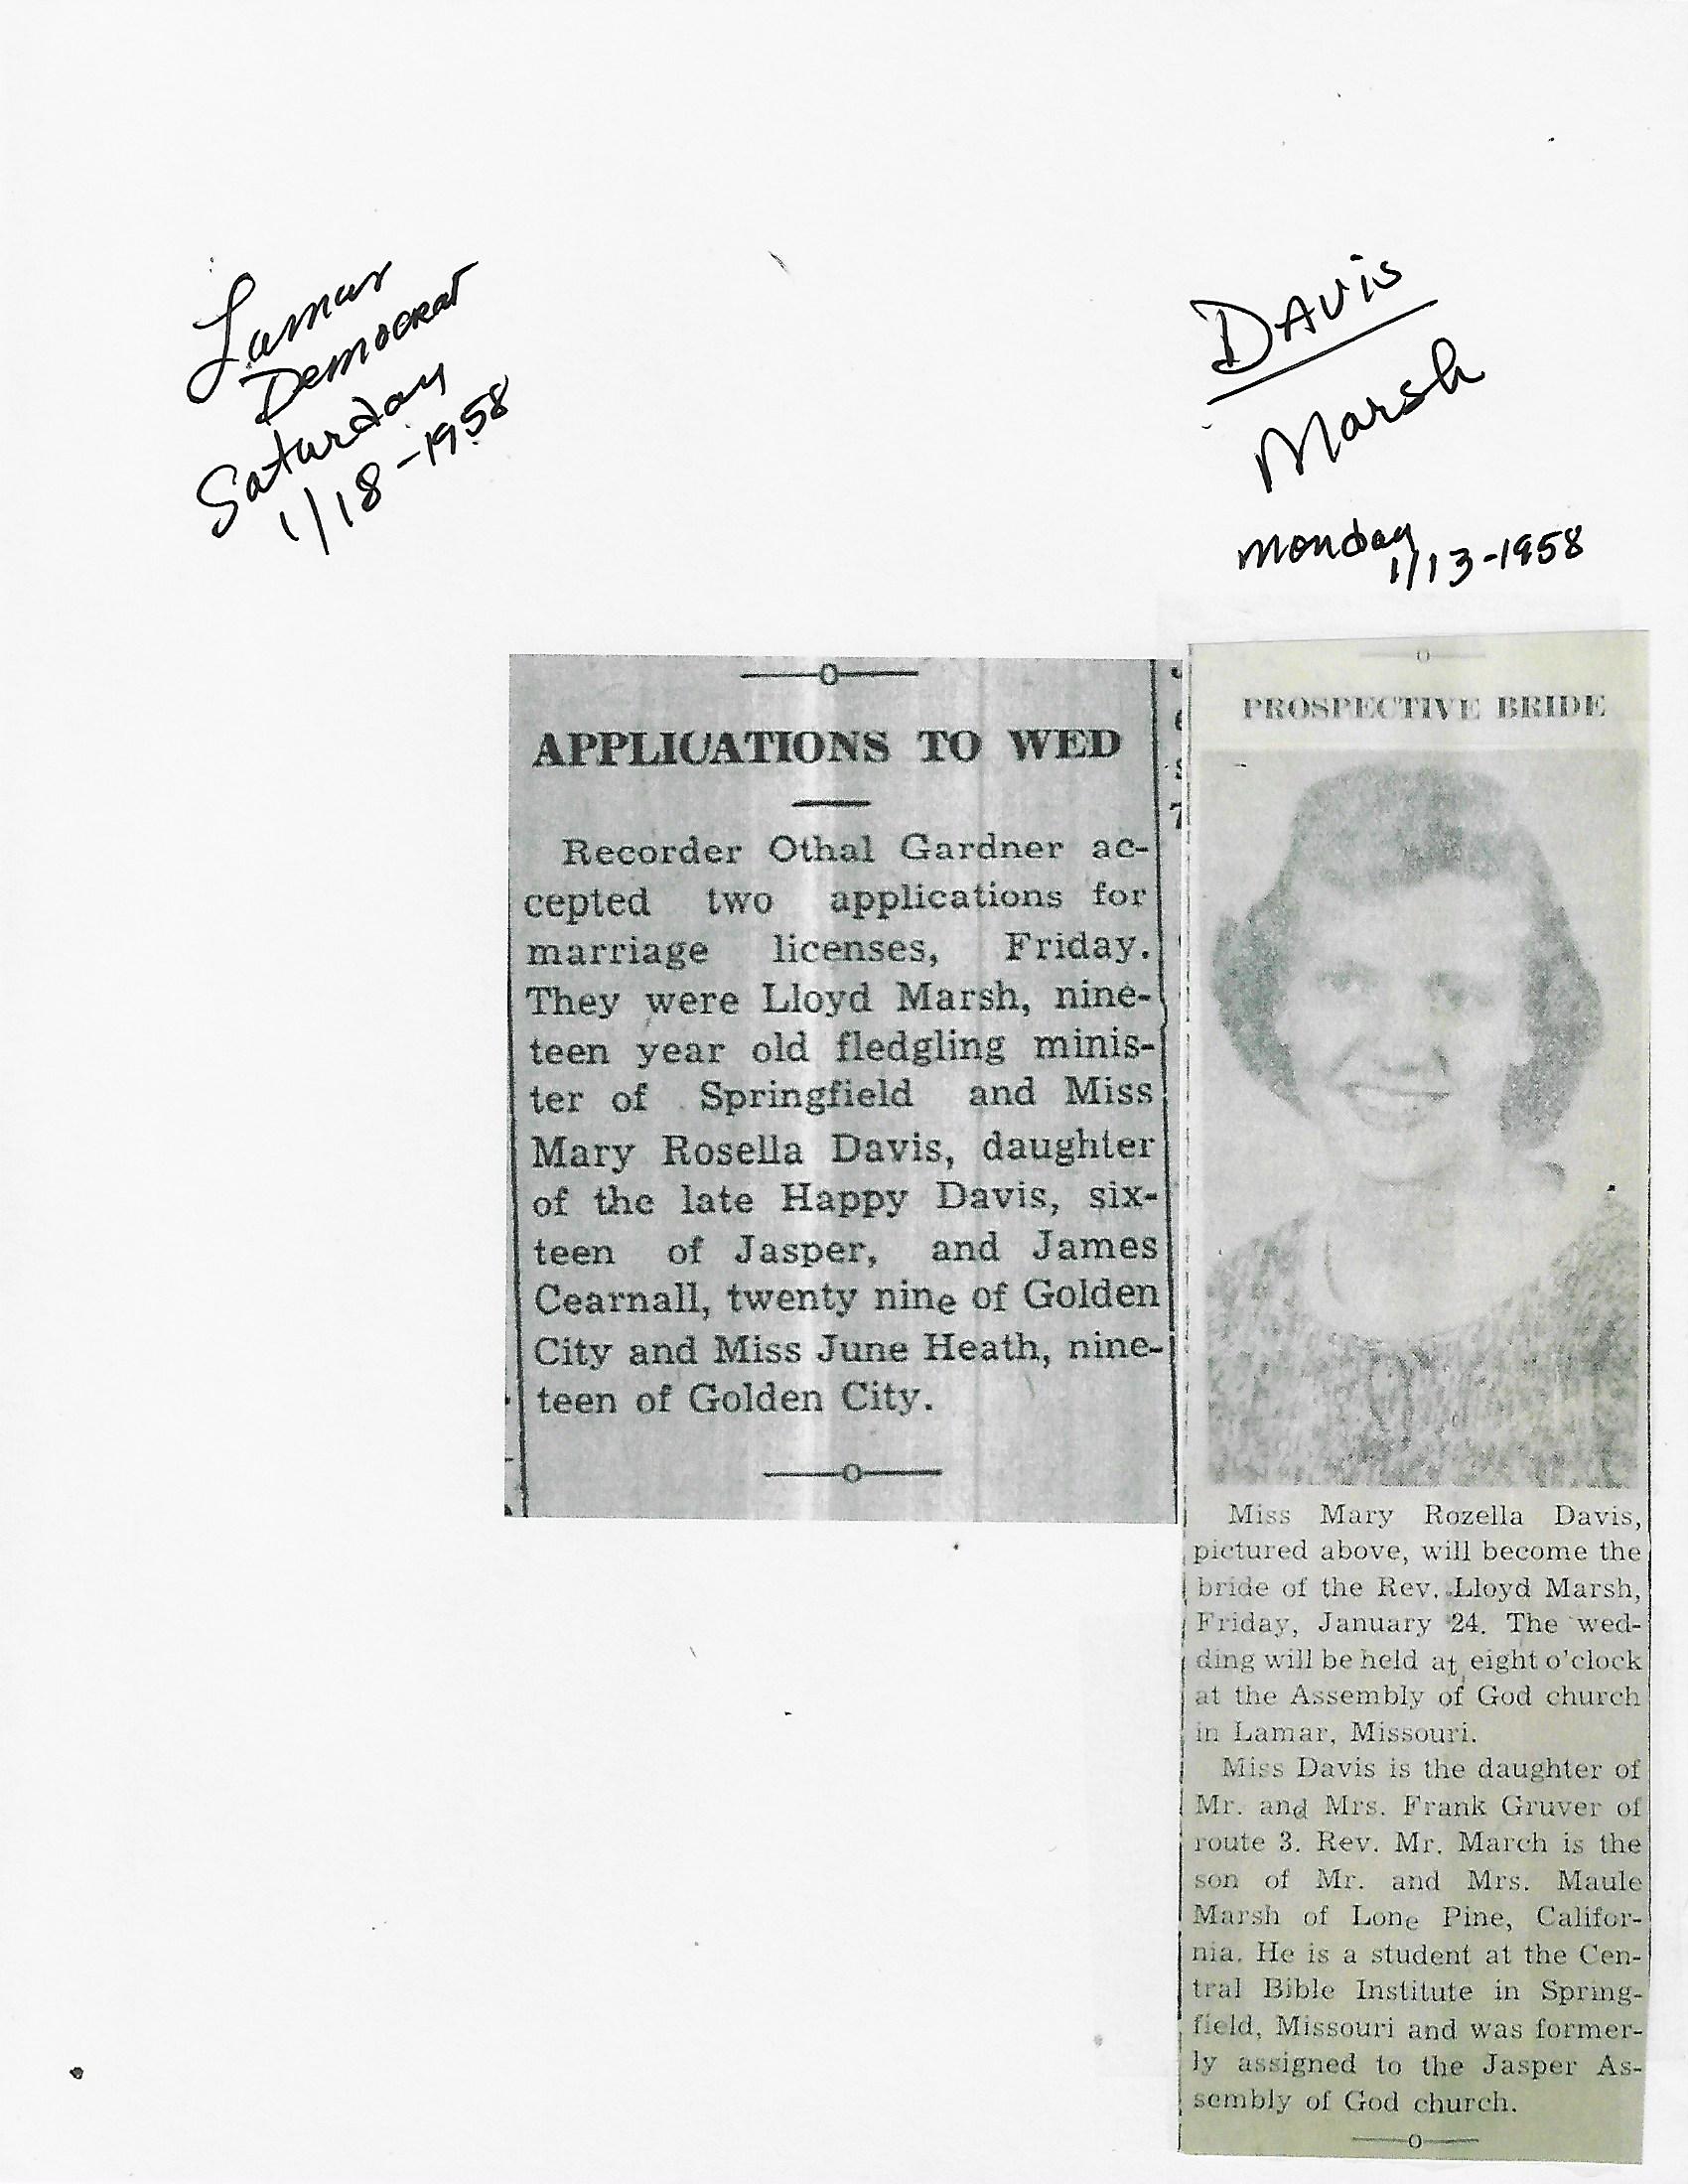 Lamar
Democrat
Saturday
1/18-1958
Davis
Marsh
Monday
1/13-1958
APPLICATIONS TO WED
Recorder Othal Gardner ac-
cepted two applications for
marriage licenses, Friday.
They were Lloyd Marsh, nine-
teen year old fledgling minis-
ter of Springfield and Miss
Mary Rosella Davis, daughter
of the late Happy Davis, six-
teen of Jasper, and James
Cearnall, twenty nine of Golden
City and Miss June Heath, nine-
teen of Golden City.
PROSPECTIVE BRIDE
Miss Mary Rozella Davis,
pictured above, will become the
bride of the Rev. Lloyd Marsh,
Friday, January 24. The wed-
ding will be held at eight o'clock
at the Assembly of God church
in Lamar, Missouri.
Miss Davis is the daughter of
Mr. and Mrs. Frank Gruver of
route 3. Rev. Mr. March is the
son of Mr. and Mrs. Maule
Marsh of Lone Pine, Califor-
nia. He is a student at the Cen-
tral Bible Institute in Spring-
field, Missouri and was former-
ly assigned to the Jasper As-
sembly of God church.